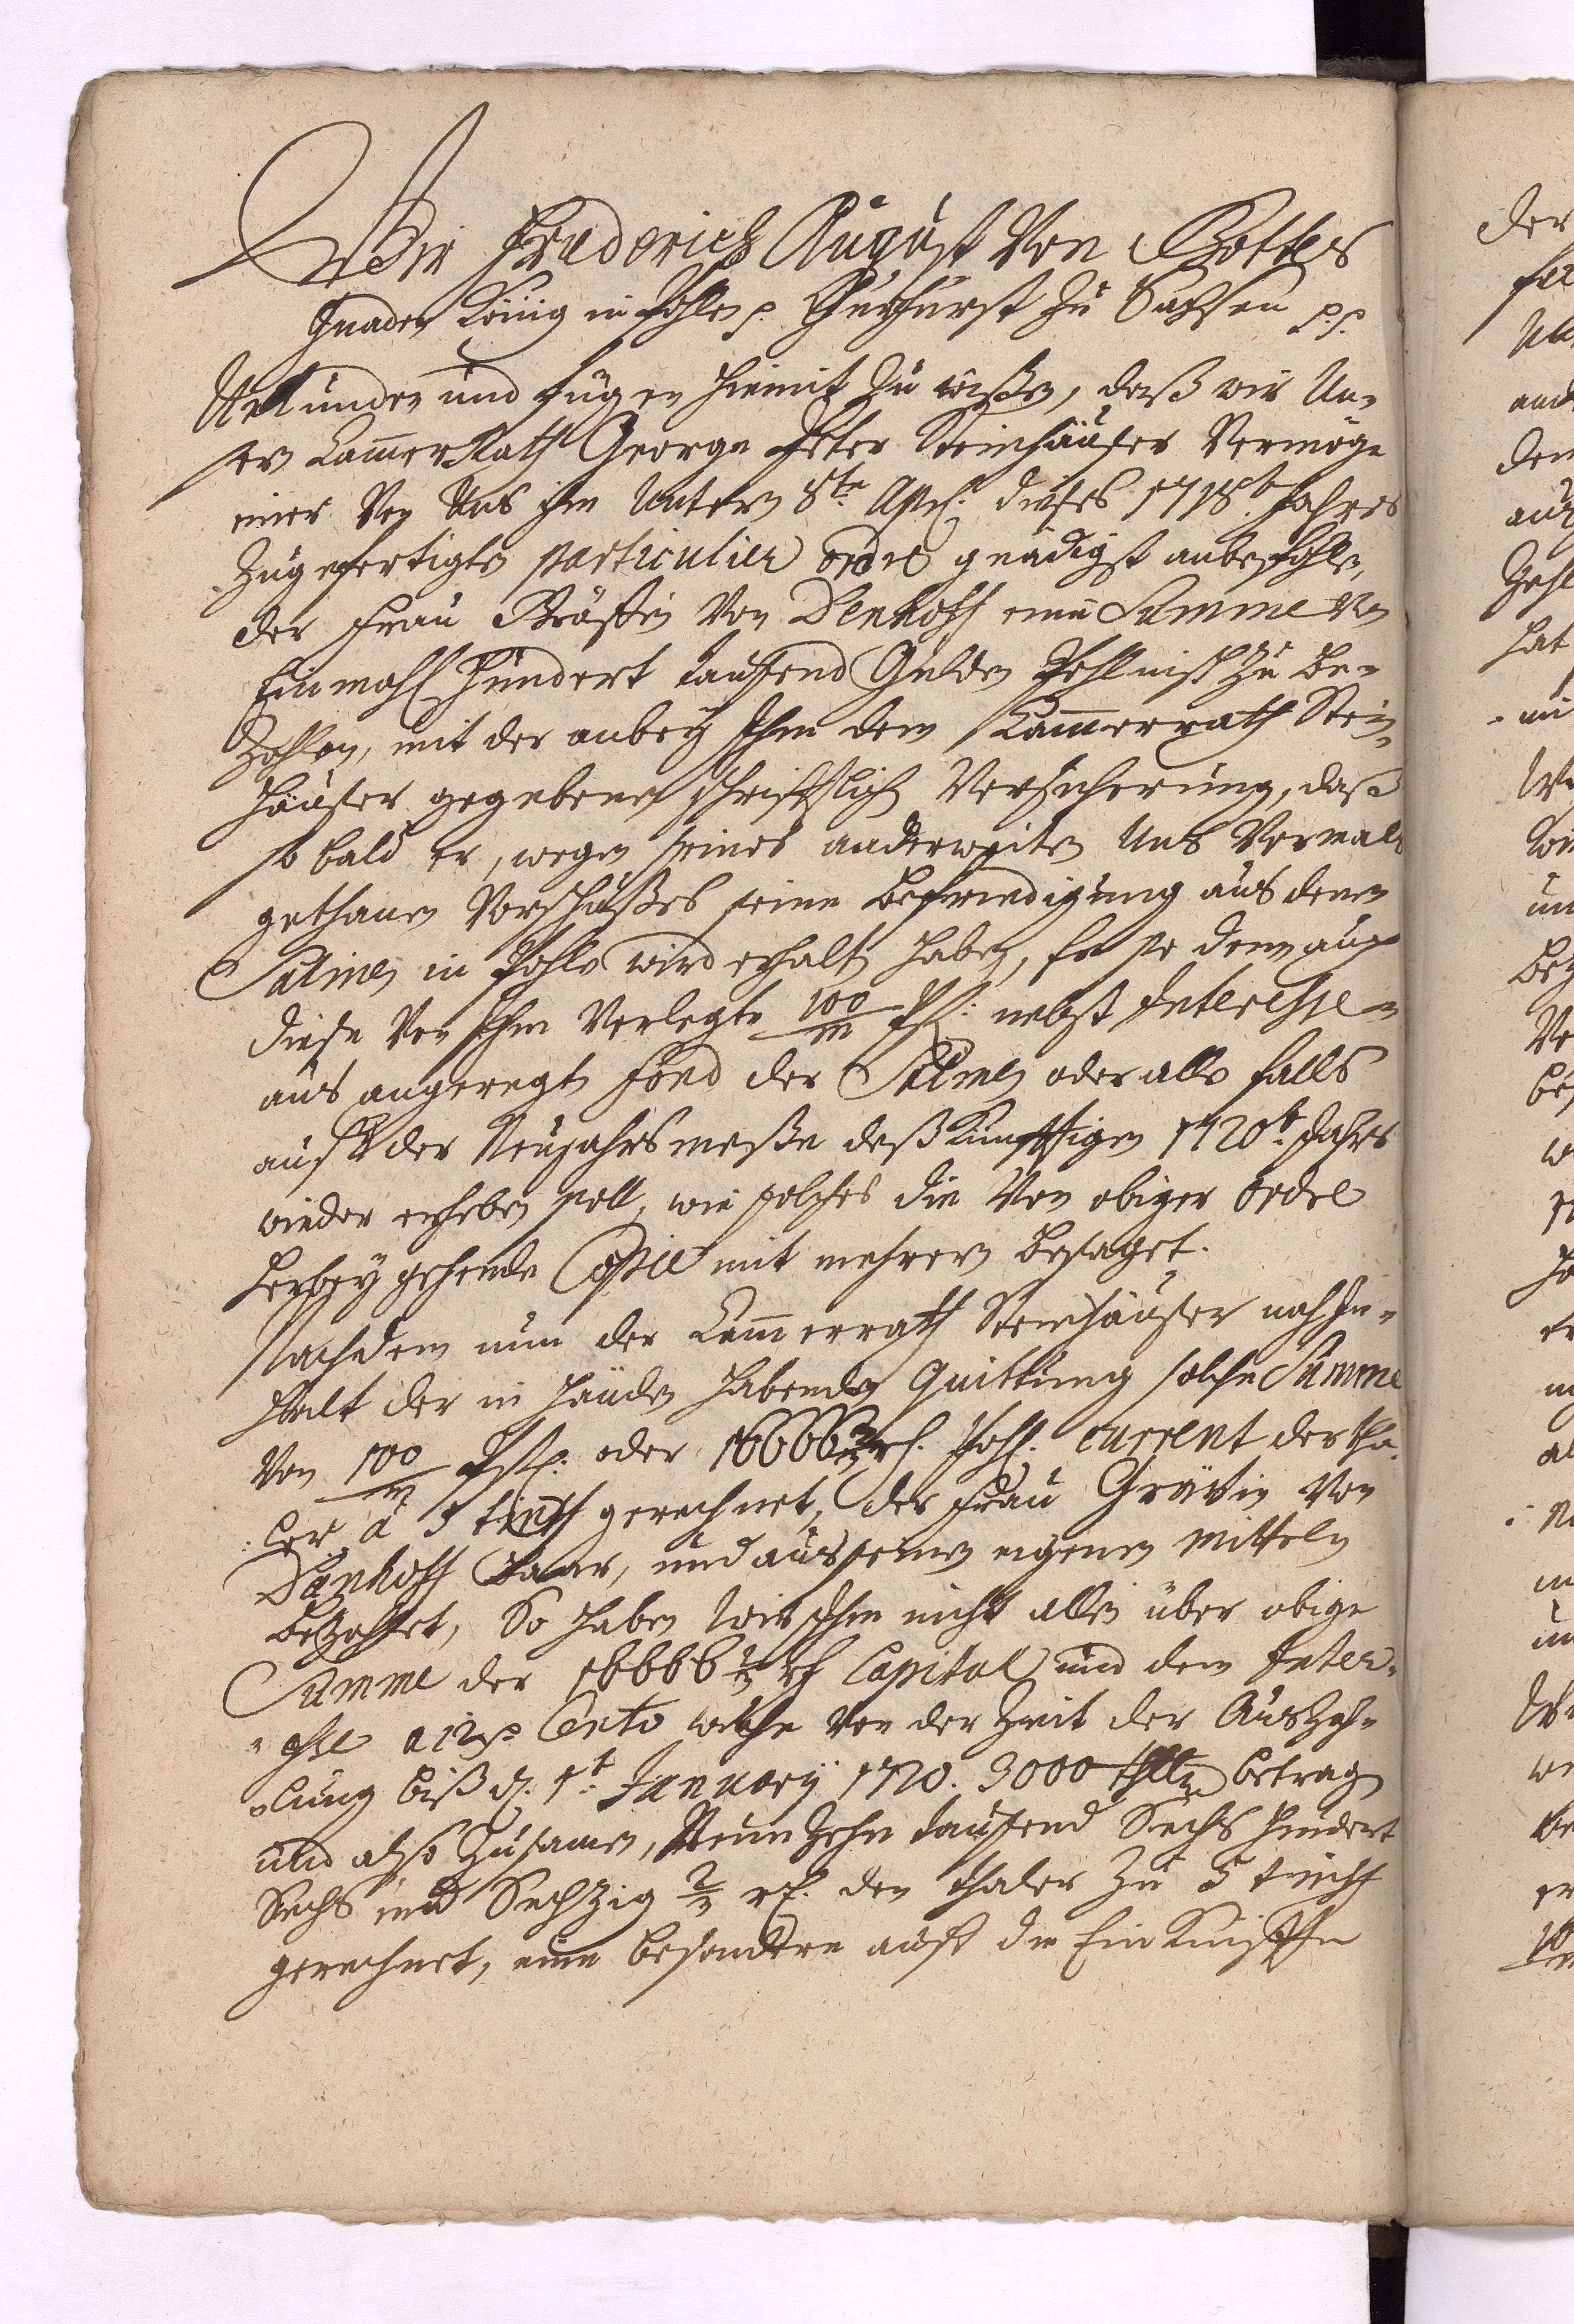 Wir Friederich August von Gottes
Gnaden König in Pohlen p. Churfürst zu Sachßen p.p.
Uhrkunden und fügen hiemit zu wißen, daß wir Un-
sern CammerRath George Peter Steinhäuser Vermöge
einer von Uns ihm Unterm 8te Apr. dieses 1718t Jahres
Zugefertigte particulier ordre gnädigst anbefohlen,
der Frau Gräffin von Denhoff eine Summe von
Einmahl Hundert tausend Gulden Pohlnisch zu be-
zahlen, mit der anbey Ihm dem Cammerrath Stein-
häußer gegebenen schrifftlich Versicherung, daß
so bald er, wegen seines anderweiten Uns Vormals
gethanen Vorschußes seine Befriedigung aus denen
Salinen in Pohlen wird erhalten haben, Er so dann auch
diese von Ihm Verlegte 100/m fl. pl. nebst Interesse
aus angeregten fond der Salinen oder alls falls
auf der Neujahrsmeße deß Künfftigen 1720t. Jahres
wieder erheben soll, wie solches die von obiger ordre
herbey gehende Copie mit mehrern besaget.
Nachdem nun der Cammerrath Steinhäußer nach In-
halt der in Händen habenden Quittung solche Summe
von 100/m fl. pl. oder 16666 2/3 rf. Pohl. current der tha-
:ler à 3 tinff gerechnet, der Frau Gräfin von
Dönhoff baar, und aus seinen eigenen Mitteln
bezahlet, So haben wir Ihm nicht allein über obige
Summe der 16666 2/3 rf Capital und dem Inter-
-esse a 12 p Cento welche von der Zeit der Auszah-
lung biß d. 1t. January 1720. 3000 thlr betragen
und also zusamen, Neunzehn tausend Sechs hundert
Sechs und Sechzig 2/3 rf. den thaler zu 5 tinff
gerechnet, eine besondere auf die Einkünffte